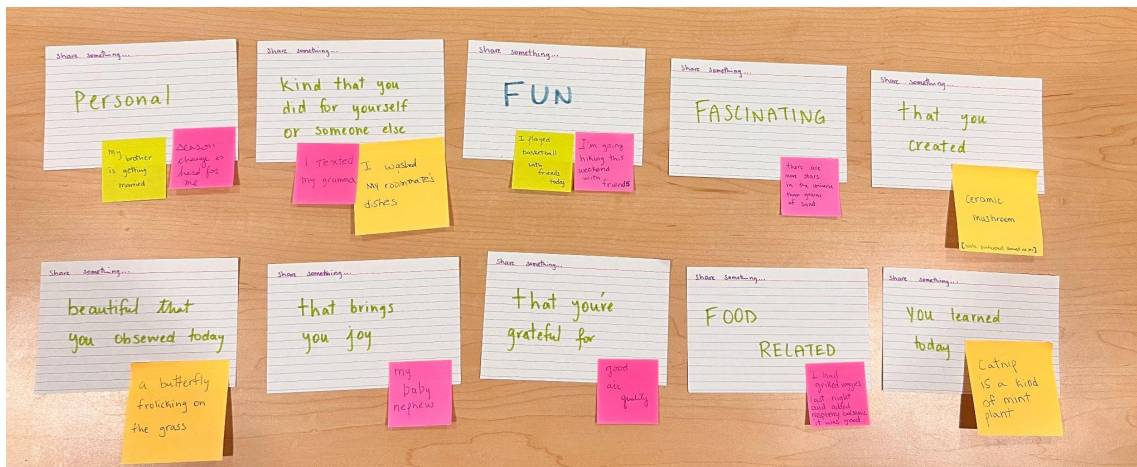 Share something...
Personal
My
brother
is getting
married
season
change is
hard for
me
Share something...
kind that you
did for yourself
or someone else
I texted
my gramma
I washed
My roommate's
dishes
Share something...
FUN
I played
basketball
with
friends
today
I'm going
hiking this
weekend
with
friends
Share something...
FASCINATING
there are
more stars
in the universe
than grains
of sand
Share something...
that you
created
Ceramic
mushroom
Share something...
beautiful that
you observed today
a butterfly
frolicking on
the grass
Share something...
that brings
you joy
my
baby
nephew
Share something...
that you're
grateful for
good
air
quality
Share something...
FOOD
RELATED
I had
grilled veggies
last night
and added
raspberry balsamic
it was good
Share something...
you learned
today
Catnip
is a kind
of mint
plant